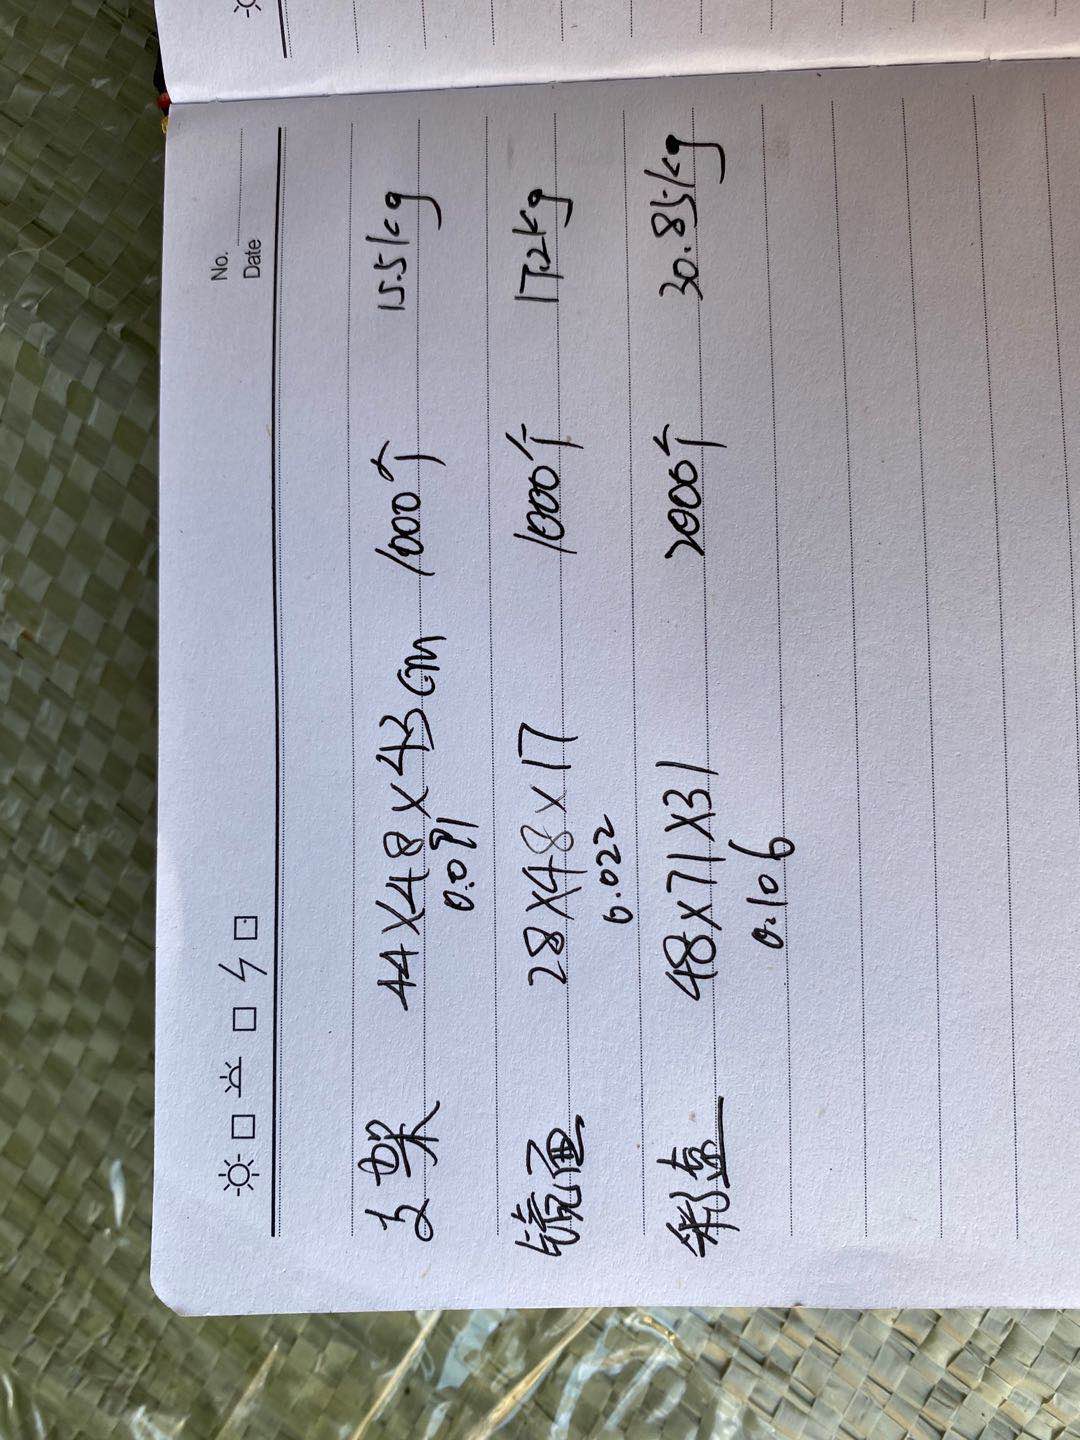 No.
Date
支架 44×48×43cm 1000个 15.5kg
0.091
28×48×17 1000个 17.2kg
0.022
彩盒 48×71×31 2000个 30.85kg
0.106